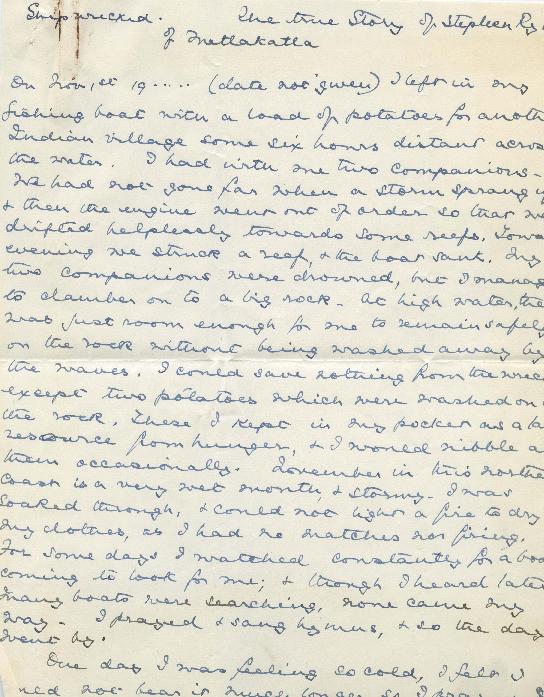 Shipwrecked. The true Story of Stephen Ry
of Metlakatla
On Nov, 1st 19..... (date not given) I left in my
fishing boat with a load of potatoes for anoth
Indian village some six hours distant acros
the water. I had with me two companions -
We had not gone far when a storm sprang u
& then the engine went out of order so that we
drifted helplessly towards some reefs. Towa
evening we struck a reef, & the boat sank. My
two companions were drowned, but I manag
to clamber on to a big rock - At high water, the
was just room enough for me to remain safely
on the rock without being washed away by
the waves. I could save nothing from the wrec
except two potatoes which were washed on
the rock. These I kept in my pocket as a la
resource from hunger, & I would nibble a
them occasionally. November in this northe
Coast is a very wet month, & stormy - I was
soaked through, & could not light a fire to dry
my clothes, as I had no matches nor firing.
For some days I watched constantly for a boa
coming to look for me; & though I heard later
many boats were searching, none came my
way - I prayed & sang hymns, & so the day
went by.
One day I was feeling so cold, I felt I
uld not bear it much longer so I pra